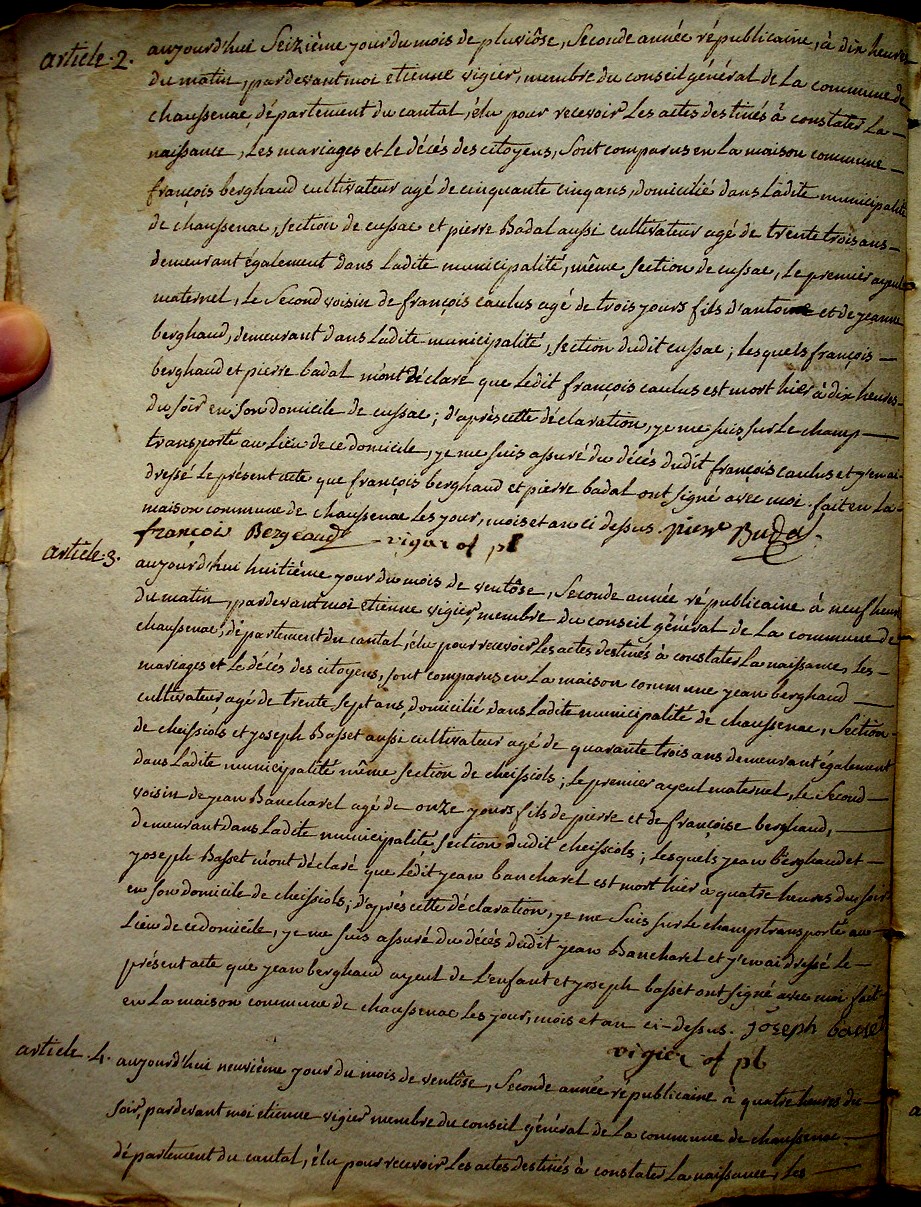 article .2. aujourd'hui Seizième jour du mois de pluviôse, Seconde année républicaine, à dix heures
du matin, pardevant moi etienne vigier, membre du conseil général de La commune de
chaussenac, département du cantal, élu pour recevoir Les actes destinés à constater La
naissance, Les mariages et Le décès des citoyens, Sont comparus en La maison commune
françois berghaud cultivateur agé de cinquante cinq ans, domicilié dans Ladite municipalité
de chaussenac, section de cussac et pierre Badal aussi cultivateur agé de trente trois ans
demeurant également dans Ladite municipalité, même section de cussac, Le premier ayeul
maternel, Le Second voisin de françois caulus agé de trois jours fils d'antoine et de jeanne
berghaud, demeurant dans Ladite municipalité, section dudit cussac ; lesquels françois
berghaud et pierre badal m'ont déclaré que Ledit françois caulus est mort hier à dix heures
du soir en son domicile de cussac ; d'après cette déclaration, je me suis sur Le champ
transporté au Lieu de ce domicile, je me suis assuré du décès dudit françois caulus et j'en ai
dressé Le présent acte que françois berghaud et pierre badal ont signé avec moi. fait en La
maison commune de chaussenac Les jour, mois et an ci dessus. pierre Badal
françois Bergeaud vigier of pl
article .3. aujourd'hui huitième jour du mois de ventôse, Seconde année républicaine à neuf heures
du matin, pardevant moi etienne vigier, membre du conseil général de La commune de
chaussenac, département du cantal, élu pour recevoir Les actes destinés à constater La naissance, Les
mariages et Le décès des citoyens, sont comparus en La maison commune jean berghaud
cultivateur agé de trente sept ans, domicilié dans Ladite municipalité de chaussenac, Section
de cheissiols et joseph Basset aussi cultivateur agé de quarante trois ans demeurant également
dans Ladite municipalité même section de cheissiols ; Le premier ayeul maternel, Le Second
voisin de jean Bancharel agé de onze jours fils de pierre et de françoise berghaud,
demeurant dans Ladite municipalité, Section dudit cheissiols ; Lesquels jean berghaud et
joseph Basset m'ont déclaré que Ledit jean bancharel est mort hier à quatre heures du soir
en son domicile de cheissiols ; d'après cette déclaration, je me suis sur Le champ transporté au
Lieu de ce domicile, je me suis assuré du décès dudit jean Bancharel et j'en ai dressé Le
présent acte que jean berghaud ayeul de L'enfant et joseph basset ont signé avec moi fait
en La maison commune de chaussenac Les jour, mois et an ci-dessus. joseph basset
vigier of pl
article .4. aujourd'hui neuvième jour du mois de ventôse, Seconde année républicaine à quatre heures du
soir, pardevant moi etienne vigier membre du conseil général de La commune de chaussenac
département du cantal, élu pour recevoir Les actes destinés à constater La naissance, Les